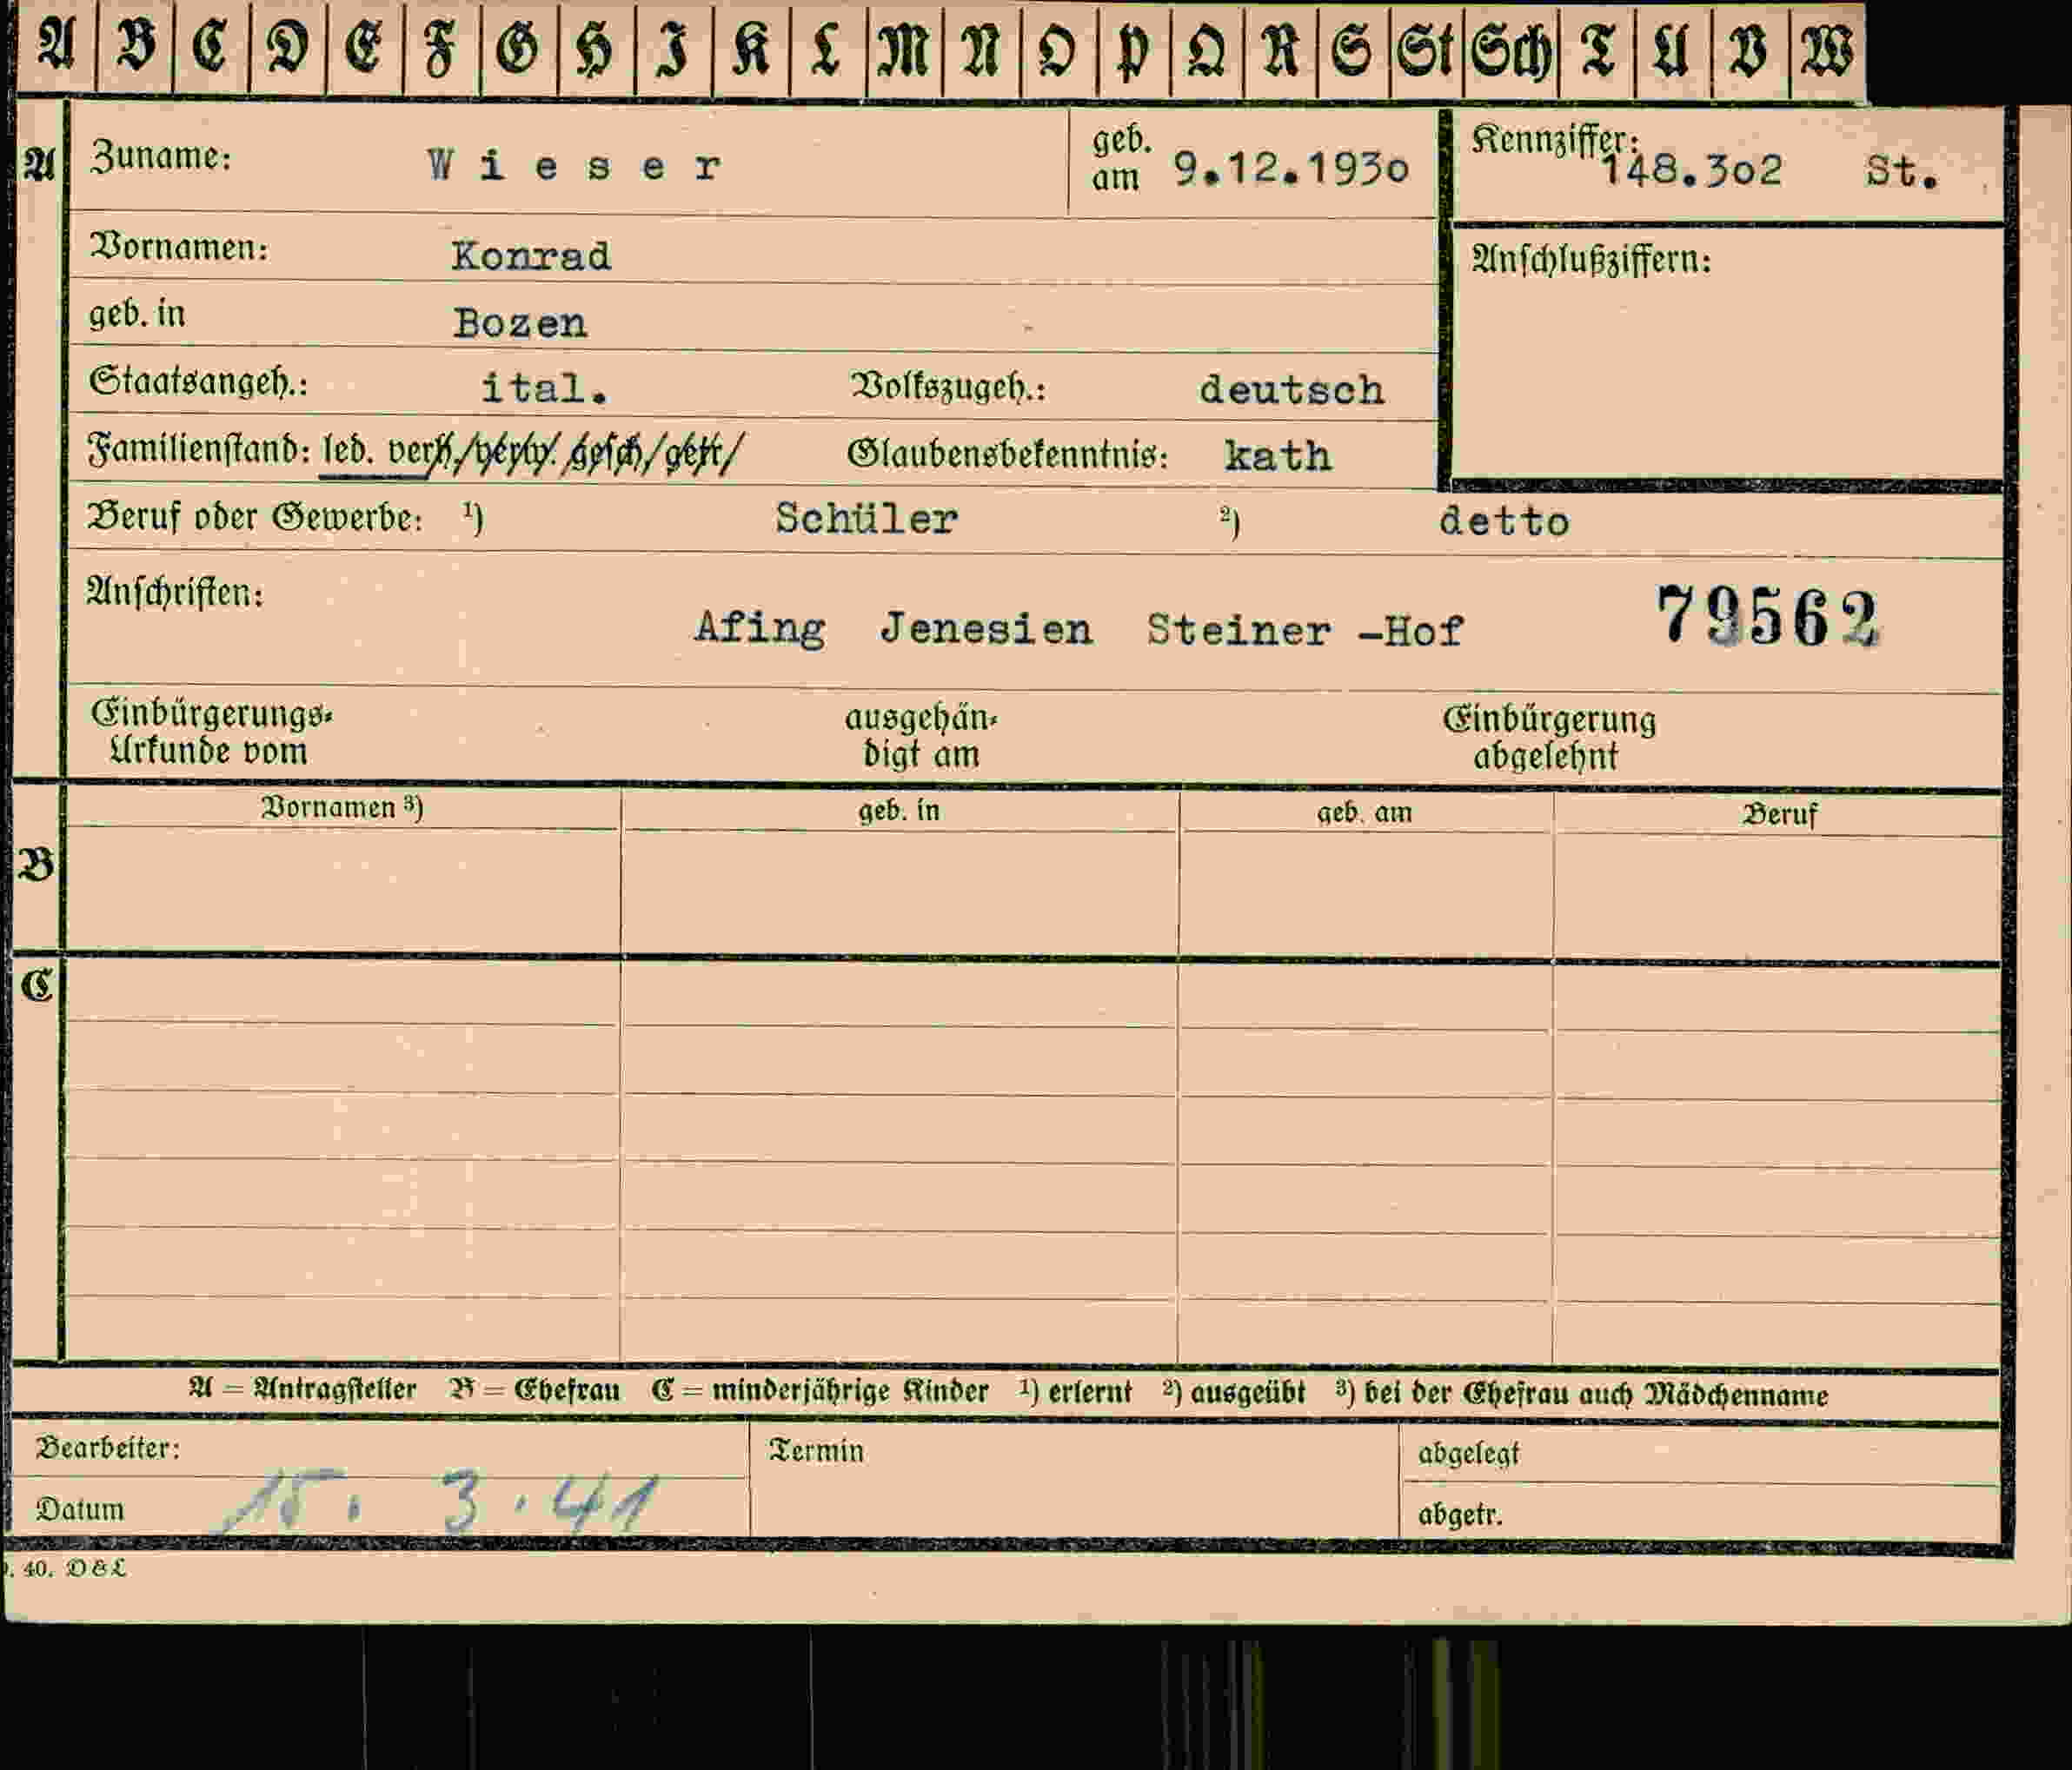 A B C D E F G H I K L M N O P Q R S St Sch T U V W
A Zuname: Wieser geb. am 9.12.193o Kennziffer: 148.3o2 St.
Vornamen: Konrad Anschlußziffern:
geb. in Bozen
Staatsangeh.: ital. Volkszugeh.: deutsch
Familienstand: led. verh. verw. gesch. getr. Glaubensbekenntnis: kath
Beruf oder Gewerbe: ¹) Schüler ²) detto
Anschriften: Afing Jenesien Steiner -Hof 79562
Einbürgerungs- ausgehän- Einbürgerung
Urkunde vom digt am abgelehnt
Vornamen ³) geb. in geb. am Beruf
B
C
A = Antragsteller B = Ehefrau C = minderjährige Kinder ¹) erlernt ²) ausgeübt ³) bei der Ehefrau auch Mädchenname
Bearbeiter: Termin abgelegt
Datum 15. 3. 41 abgetr.
. 40. D & L